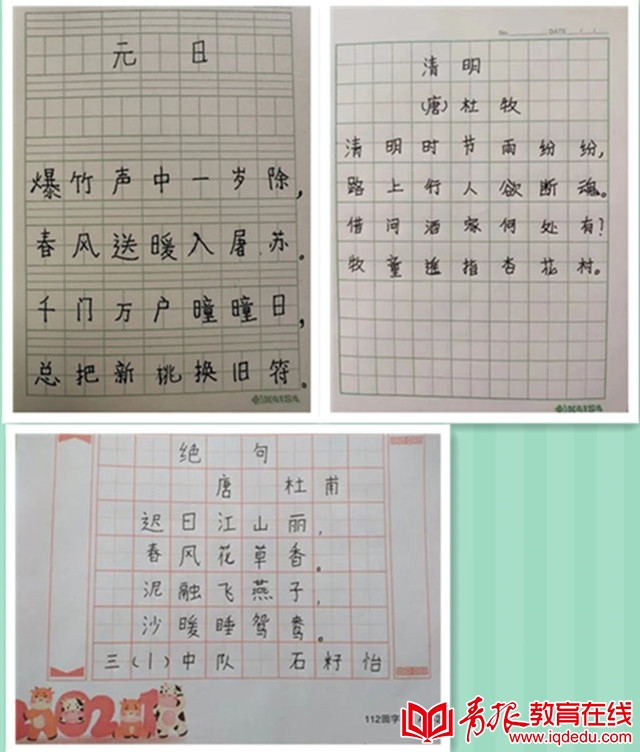 元日
爆竹声中一岁除,
春风送暖入屠苏。
千门万户曈曈日,
总把新桃换旧符。
KAISA
No. DATE / /
清明
(唐)杜牧
清明时节雨纷纷,
路上行人欲断魂。
借问酒家何处有?
牧童遥指杏花村。
KAISA
绝句
唐 杜甫
迟日江山丽,
春风花草香。
泥融飞燕子,
沙暖睡鸳鸯。
三(1)中队 石籽怡
112圆字
青报教育在线
www.iqdedu.com